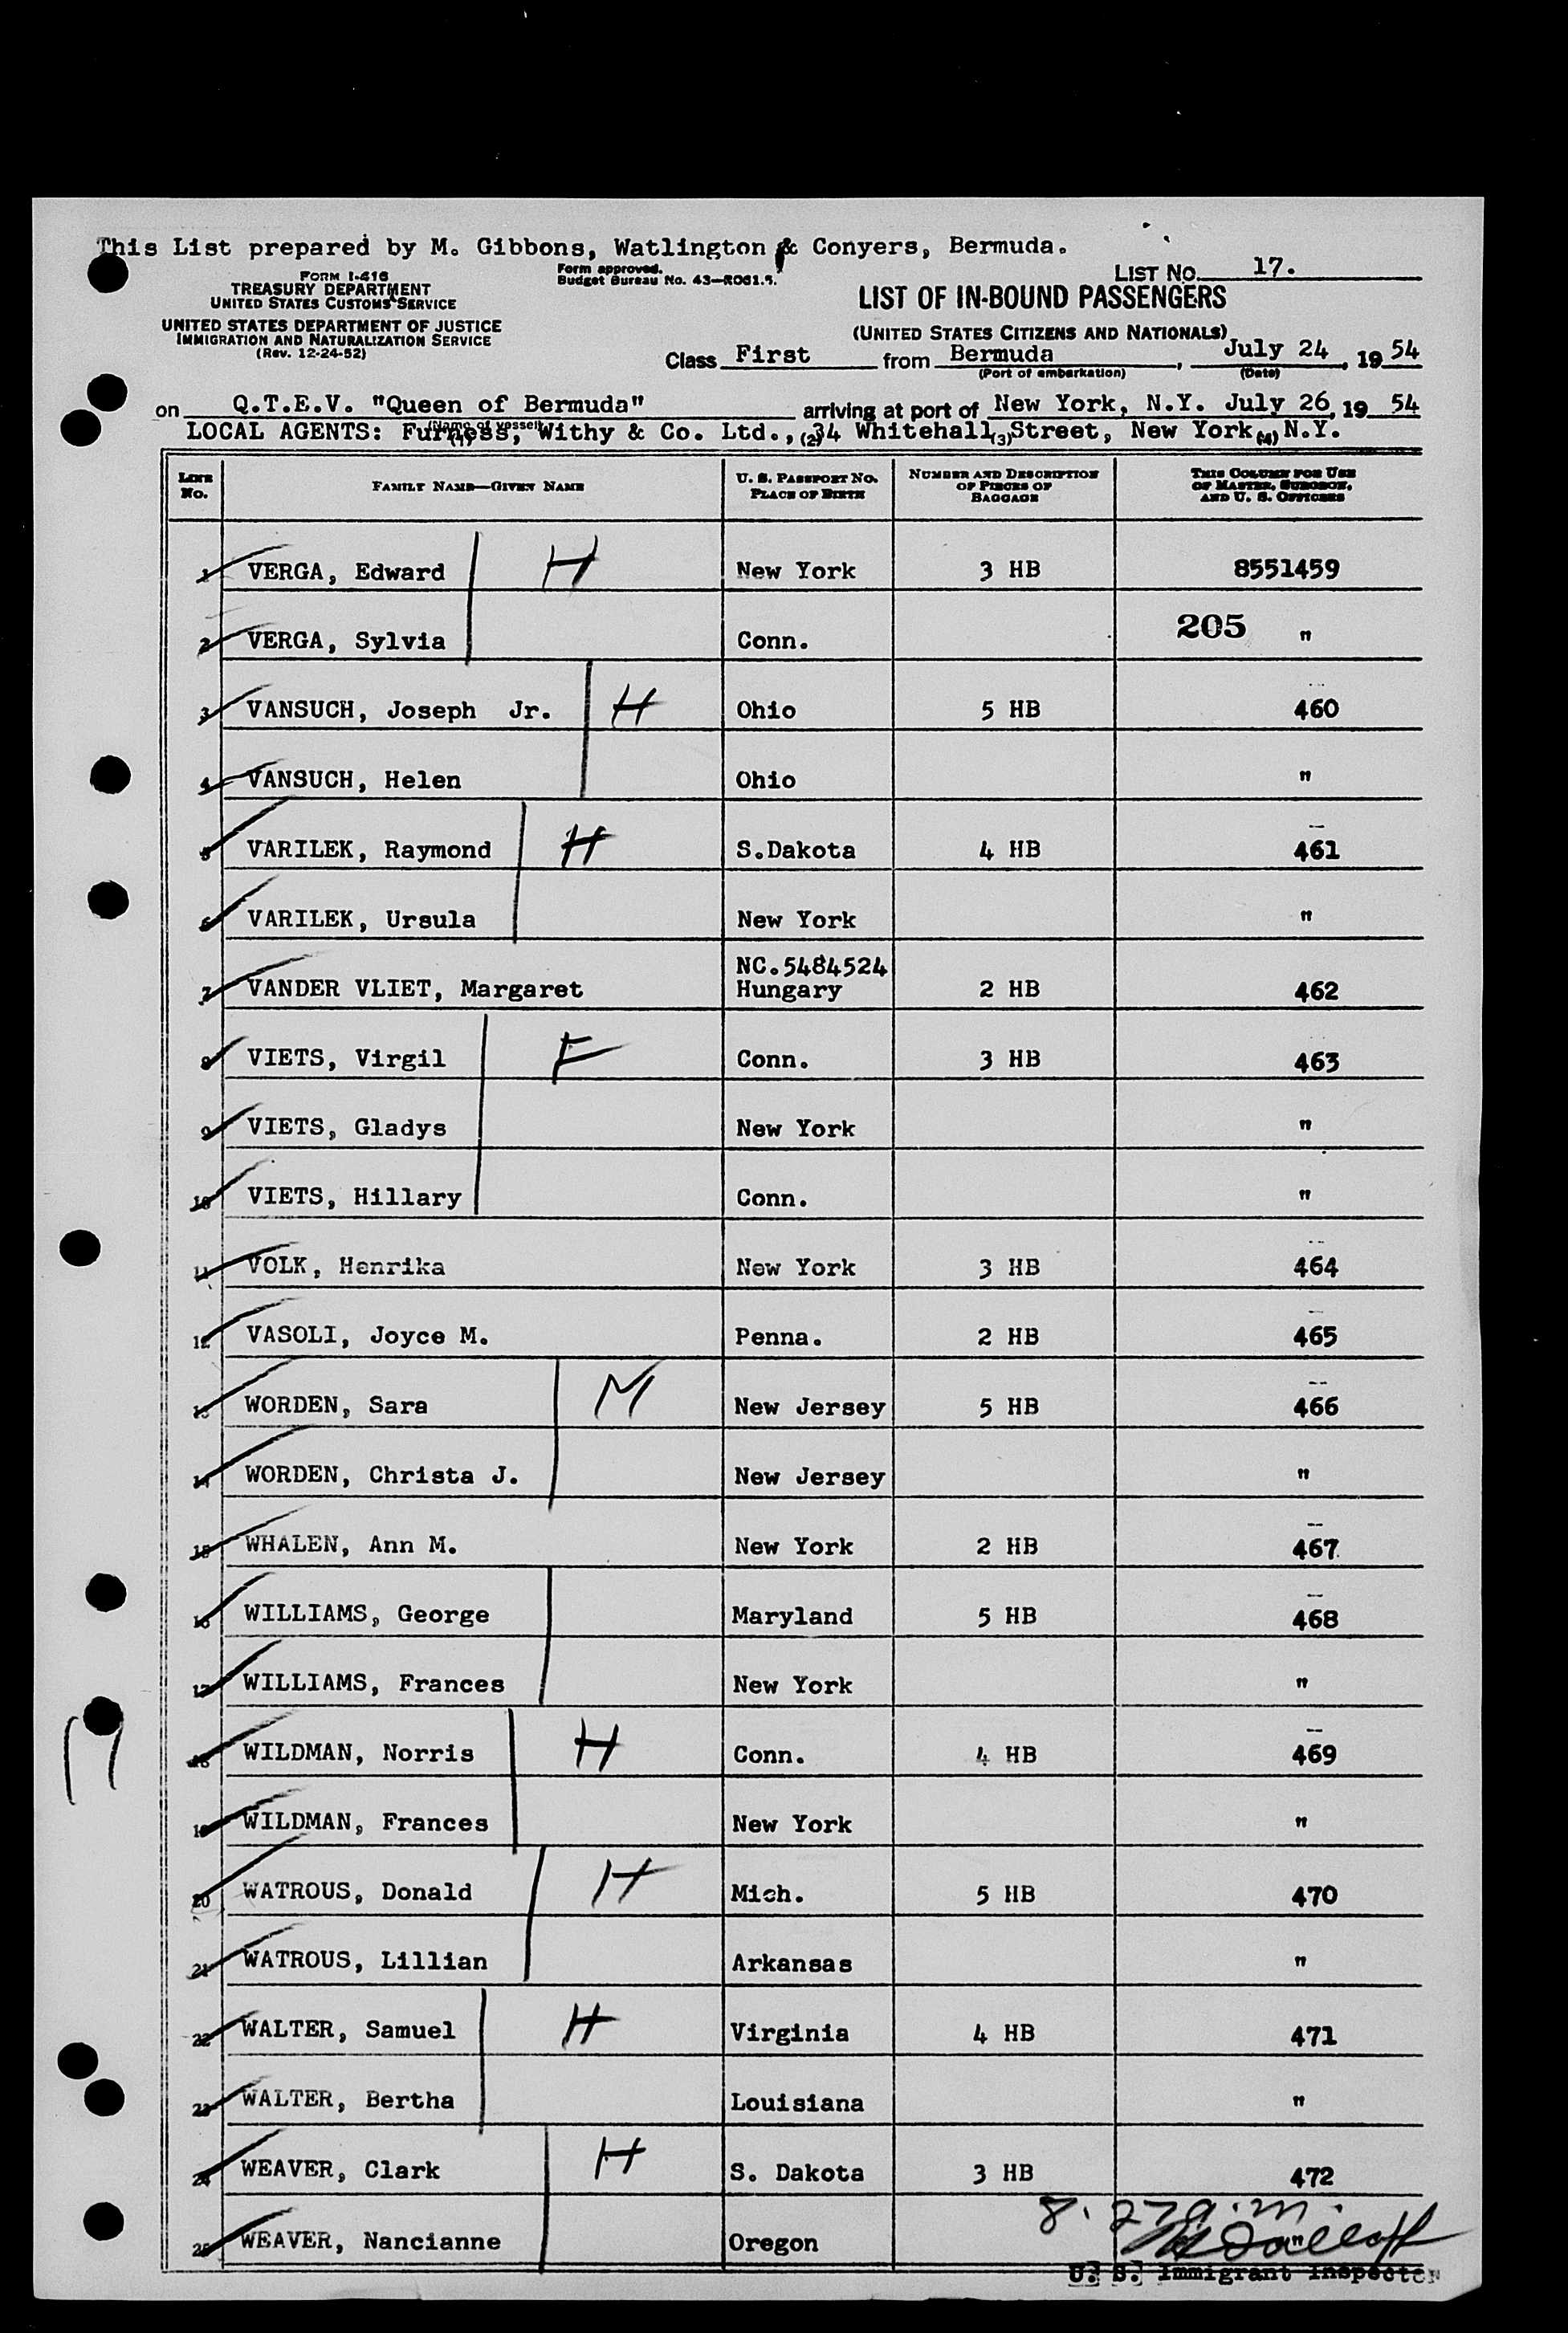 This List prepared by M. Gibbons, Watlington & Conyers, Bermuda.
FORM I-416
TREASURY DEPARTMENT
UNITED STATES CUSTOMS SERVICE
UNITED STATES DEPARTMENT OF JUSTICE
IMMIGRATION AND NATURALIZATION SERVICE
(Rev. 12-24-52)
Form approved.
Budget Bureau No. 43—R061.5.
LIST NO. 17.
LIST OF IN-BOUND PASSENGERS
(UNITED STATES CITIZENS AND NATIONALS)
Class First from Bermuda, July 24, 1954
(Port of embarkation) (Date)
on Q.T.E.V. "Queen of Bermuda" arriving at port of New York, N.Y. July 26, 1954
(Name of vessel)
LOCAL AGENTS: Furness, Withy & Co. Ltd., 34 Whitehall Street, New York, N.Y.
(1) (2) (3) (4)
LINE NO. FAMILY NAME—GIVEN NAME U. S. PASSPORT NO. PLACE OF BIRTH NUMBER AND DESCRIPTION OF PIECES OF BAGGAGE THIS COLUMN FOR USE OF MASTER, SURGEON, AND U. S. OFFICERS
1 VERGA, Edward H New York 3 HB 8551459
2 VERGA, Sylvia Conn. 205 "
3 VANSUCH, Joseph Jr. H Ohio 5 HB 460
4 VANSUCH, Helen Ohio "
5 VARILEK, Raymond H S.Dakota 4 HB 461
6 VARILEK, Ursula New York "
7 VANDER VLIET, Margaret NC.5484524 Hungary 2 HB 462
8 VIETS, Virgil F Conn. 3 HB 463
9 VIETS, Gladys New York "
10 VIETS, Hillary Conn. "
11 VOLK, Henrika New York 3 HB 464
12 VASOLI, Joyce M. Penna. 2 HB 465
13 WORDEN, Sara M New Jersey 5 HB 466
14 WORDEN, Christa J. New Jersey "
15 WHALEN, Ann M. New York 2 HB 467
16 WILLIAMS, George Maryland 5 HB 468
17 WILLIAMS, Frances New York "
17
18 WILDMAN, Norris H Conn. 4 HB 469
19 WILDMAN, Frances New York "
20 WATROUS, Donald H Mich. 5 HB 470
21 WATROUS, Lillian Arkansas "
22 WALTER, Samuel H Virginia 4 HB 471
23 WALTER, Bertha Louisiana "
24 WEAVER, Clark H S. Dakota 3 HB 472
8.27 a.m.
25 WEAVER, Nancianne Oregon "
U. S. Immigrant Inspector